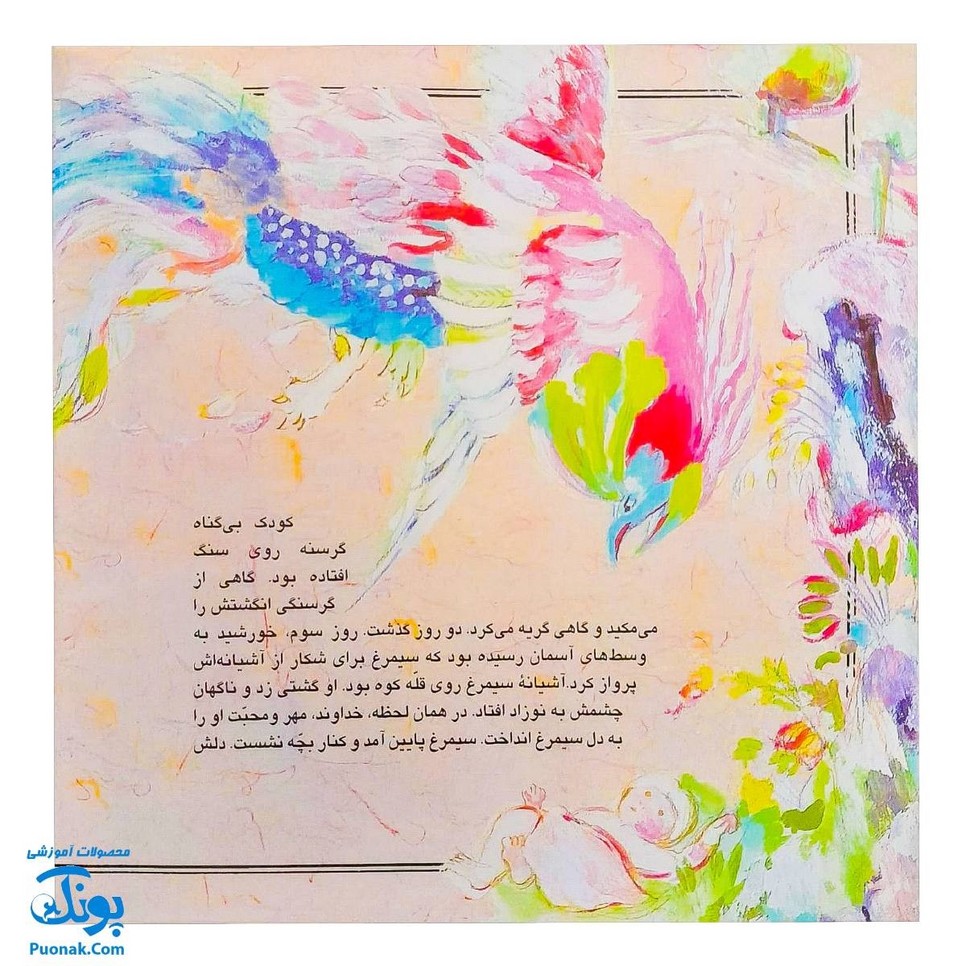 کودک بی‌گناه
گرسنه روی سنگ
افتاده بود. گاهی از
گرسنگی انگشتش را
می‌مکید و گاهی گریه می‌کرد. دو روز گذشت. روز سوم، خورشید به
وسط‌های آسمان رسیده بود که سیمرغ برای شکار از آشیانه‌اش
پرواز کرد.آشیانهٔ سیمرغ روی قلّه کوه بود. او گشتی زد و ناگهان
چشمش به نوزاد افتاد. در همان لحظه، خداوند، مهر ومحبّت او را
به دل سیمرغ انداخت. سیمرغ پایین آمد و کنار بچّه نشست. دلش
محصولات آموزشی
پونک
Puonak.Com